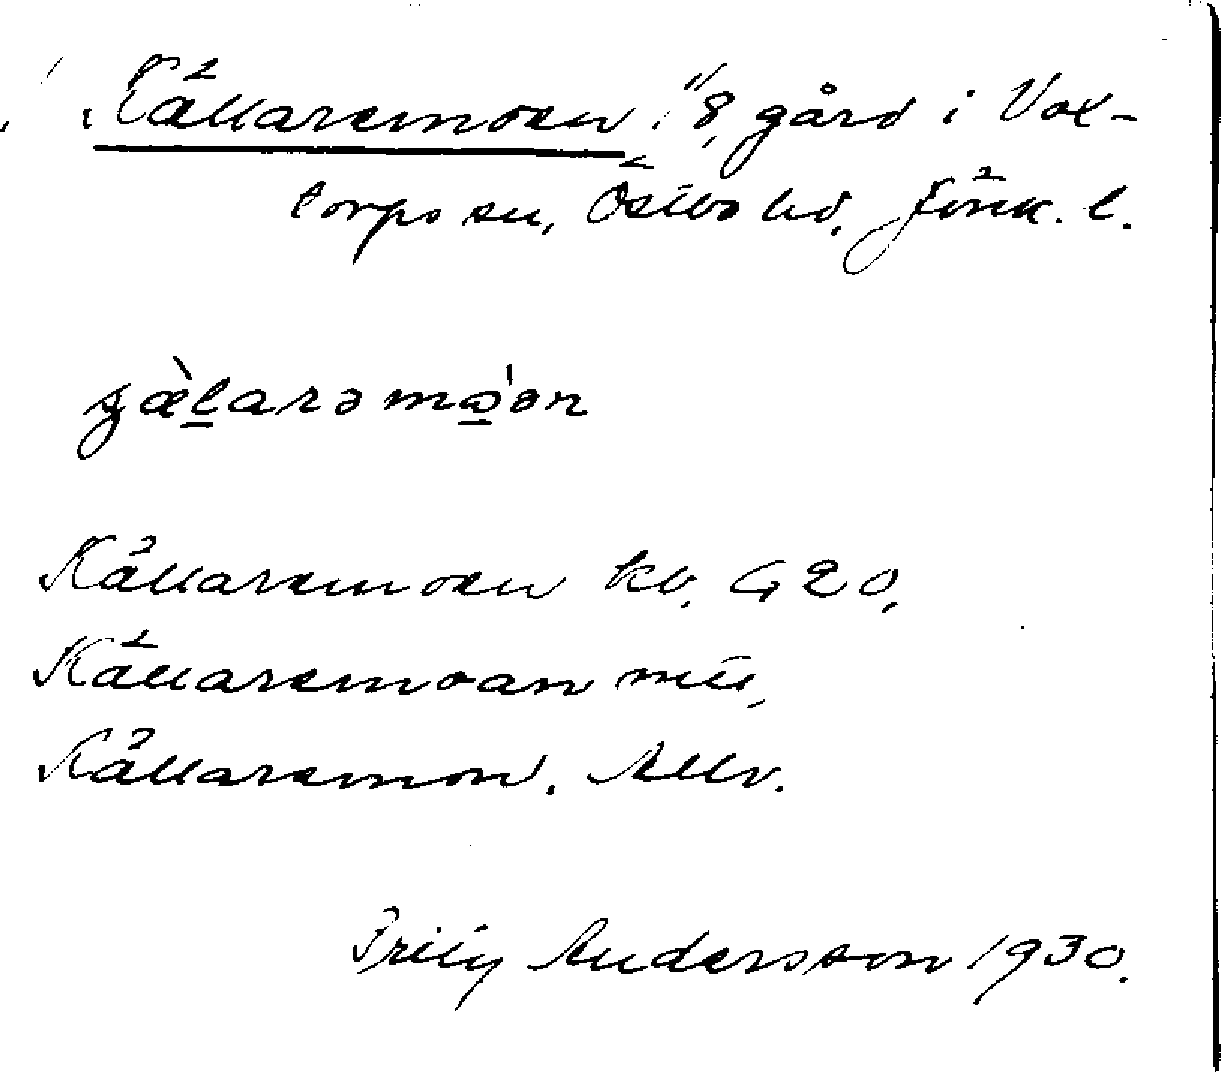 Källaremoen, 1/8 gård i Vox-
torps sn, Östbo hd, Jönk. l.
Källaremoen kb. G 20,
Källaremoan
Källaremon. Allv.
Frity Andersson 1930.